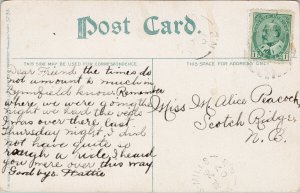 Post Card.
THIS SIDE MAY BE USED FOR CORRESPONDENCE.
Dear Friend, the times do
not amount to much in
know Remember
where we were going the
night we herd the
I was over there last
Thursday night, I did
not have quite so
rough a ride, I heard
you were over this way
Good bye Hattie
Miss M. Alice Peacock
Scotch Ridge,
N. B.